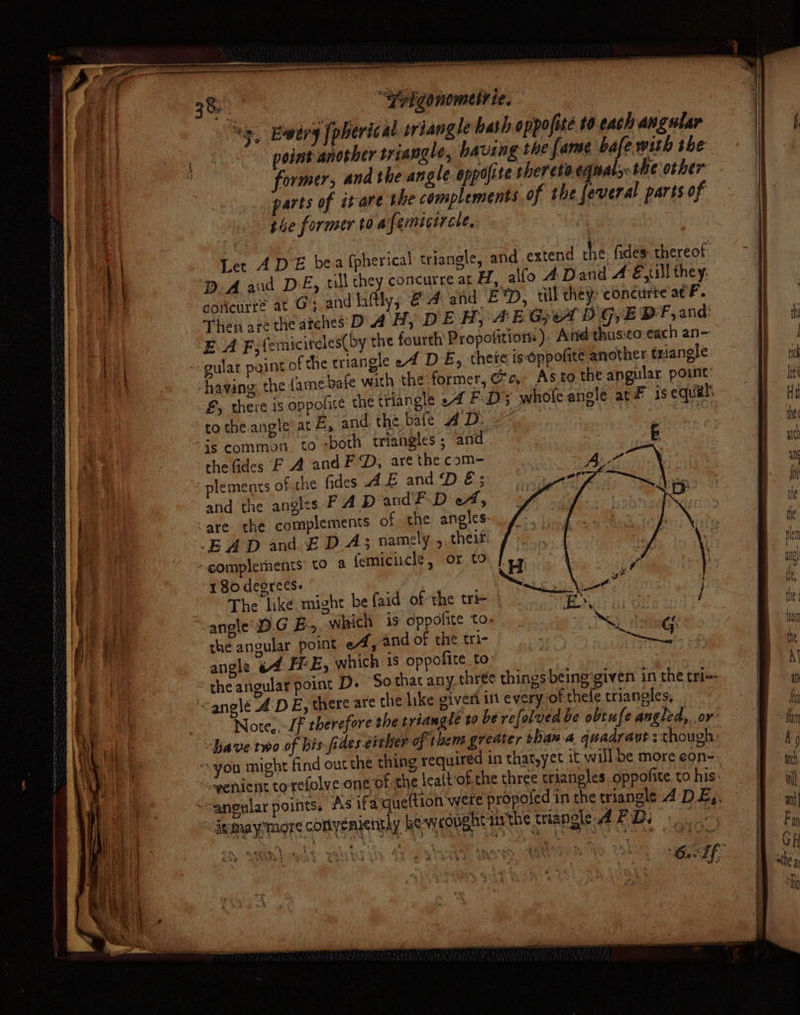 38. Trigonometrie.
5. Every spherical triangle hath opposite to each angular
point another triangle, having the same base with the
former, and the angle opposite thereto equal, the other
parts of it are the complements of the several parts of
the former to a semicircle.
Let A D E be a spherical triangle, and extend the sides thereof
D A and D E, till they concurre at H, also A D and A E, till they
concurre at G; and lastly, E A and E D, till they concurre at F.
Then are the arches D A H, D E H, A E G, A D G, E D F, and
E A F, semicircles (by the fourth Proposition). And thus to each an-
gular point of the triangle A D E, there is opposite another triangle
having the same base with the former, &c. As to the angular point
E, there is opposite the triangle A F D; whose angle at F is equal
to the angle at E, and the base A D,
is common to both triangles; and
the sides F A and F D, are the com-
plements of the sides A E and D E;
and the angles F A D and F D A,
are the complements of the angles
E A D and E D A; namely, their
complements to a semicircle, or to
180 degrees.
The like might be said of the tri-
angle D G E, which is opposite to
the angular point A, and of the tri-
angle A H E, which is opposite to
the angular point D. So that any three things being given in the tri-
angle A D E, there are the like given in every of these triangles.
Note, If therefore the triangle to be resolved be obtuse angled, or
have two of his sides either of them greater than a quadrant: though
you might find out the thing required in that, yet it will be more con-
venient to resolve one of the least of the three triangles opposite to his
angular points. As if a question were proposed in the triangle A D E,
it may more conveniently be wrought in the triangle A F D.
6. If
F
A
D
H
E
G